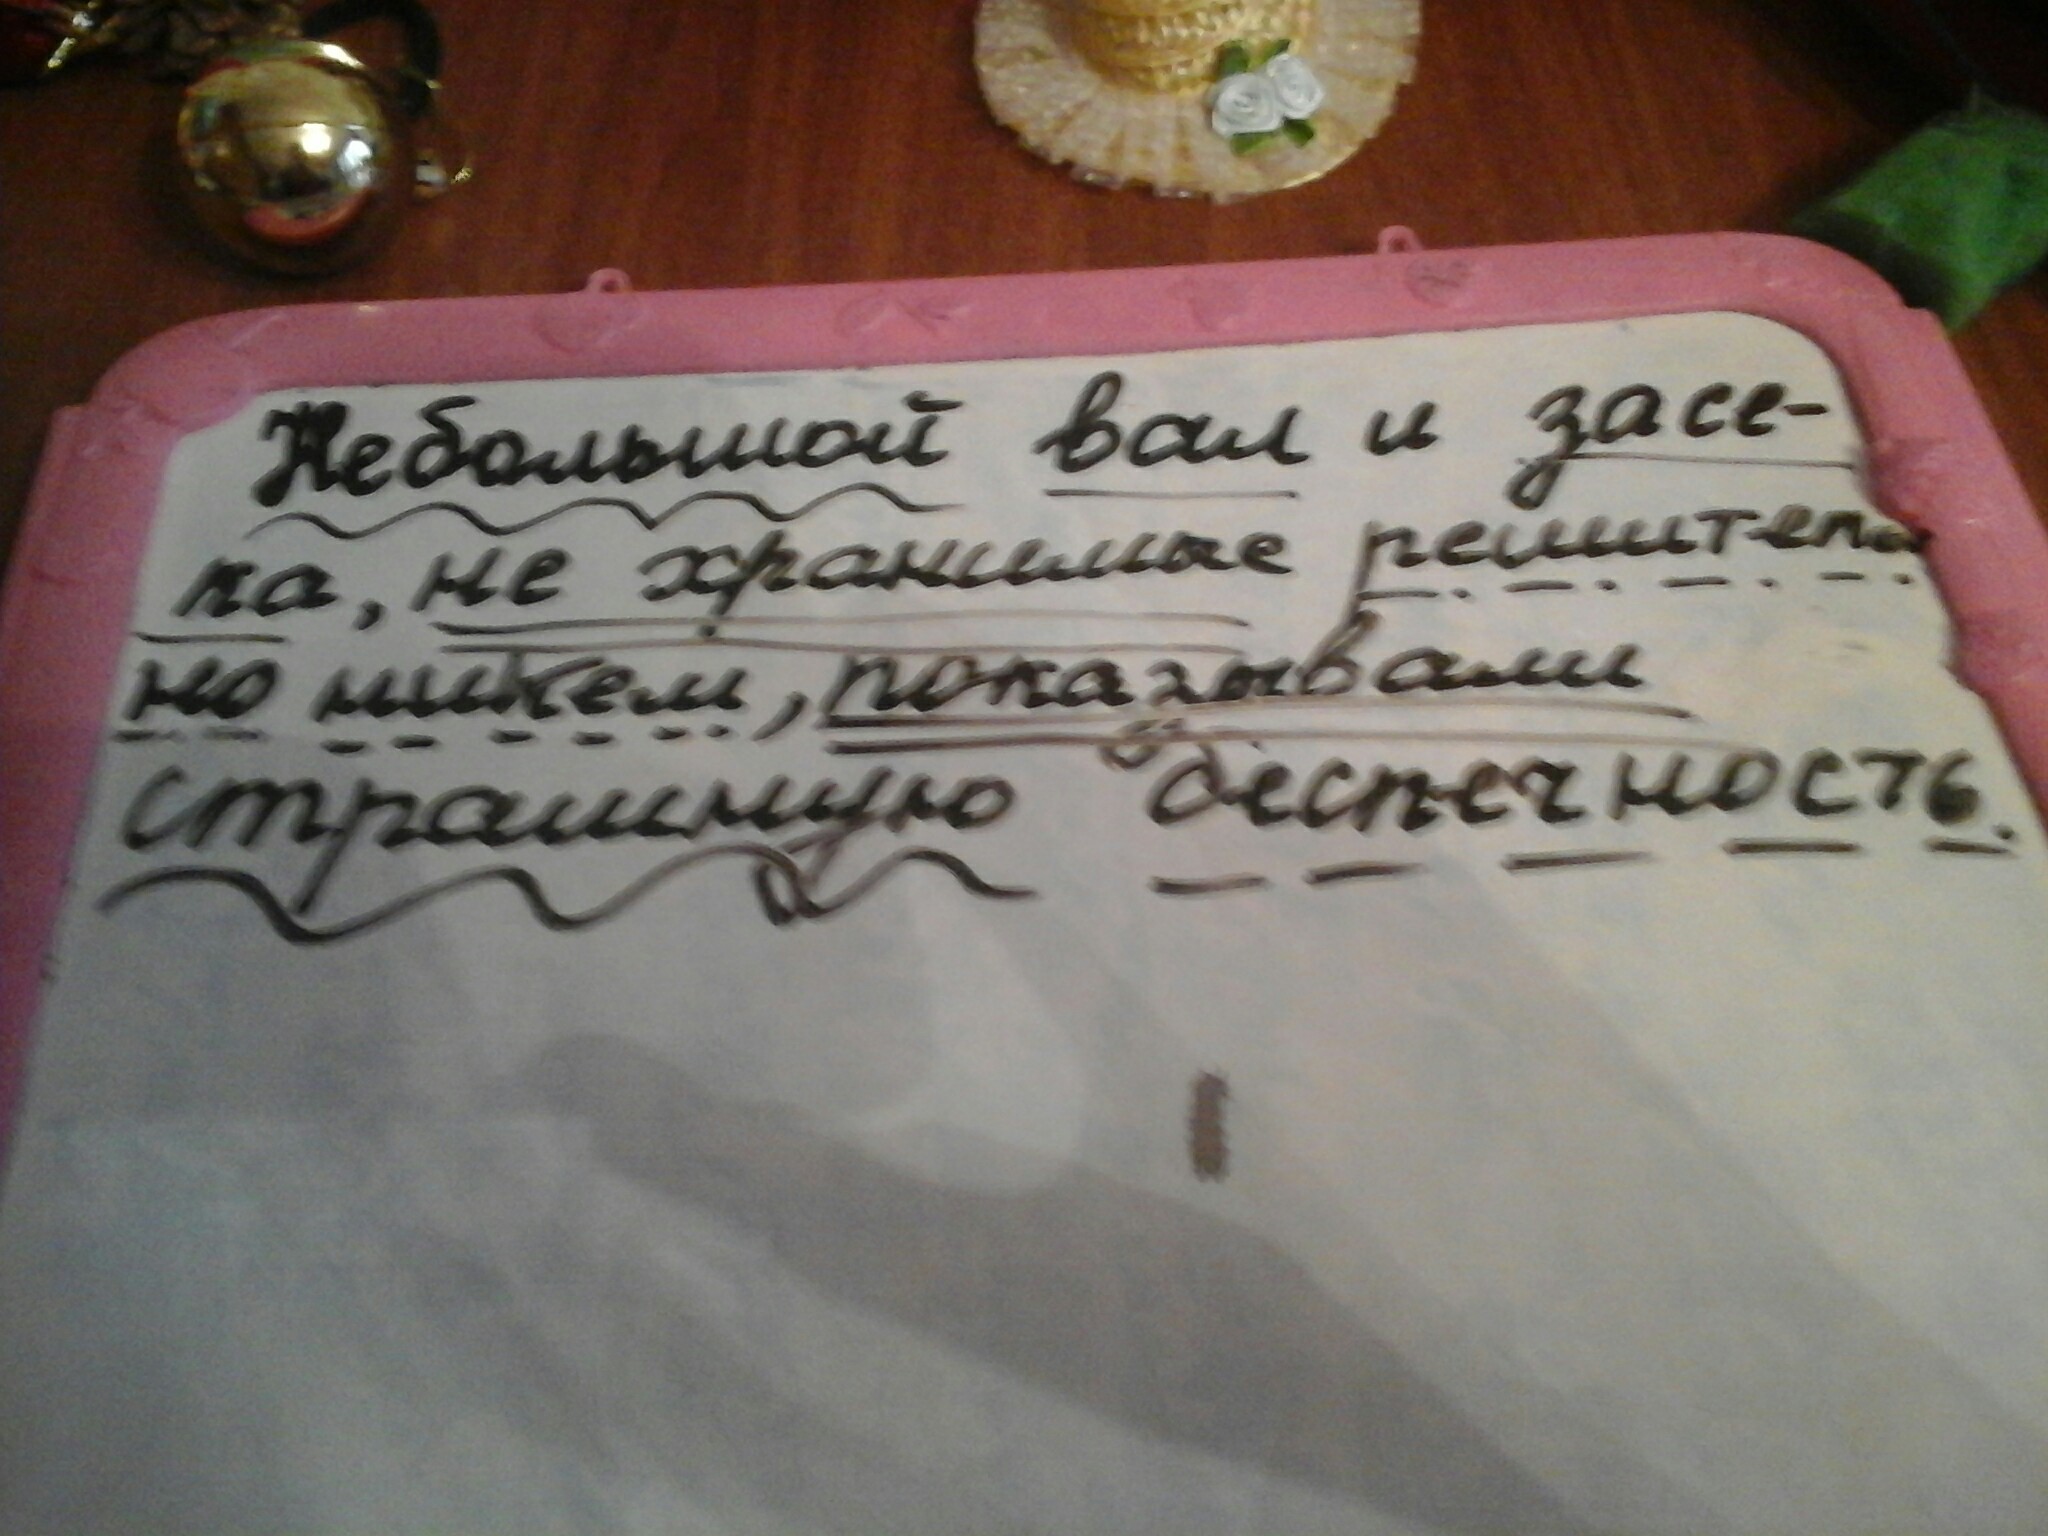 Небольшой вал и засе-
ка, не хранимые решитель
но никем, показывали
страшную беспечность.